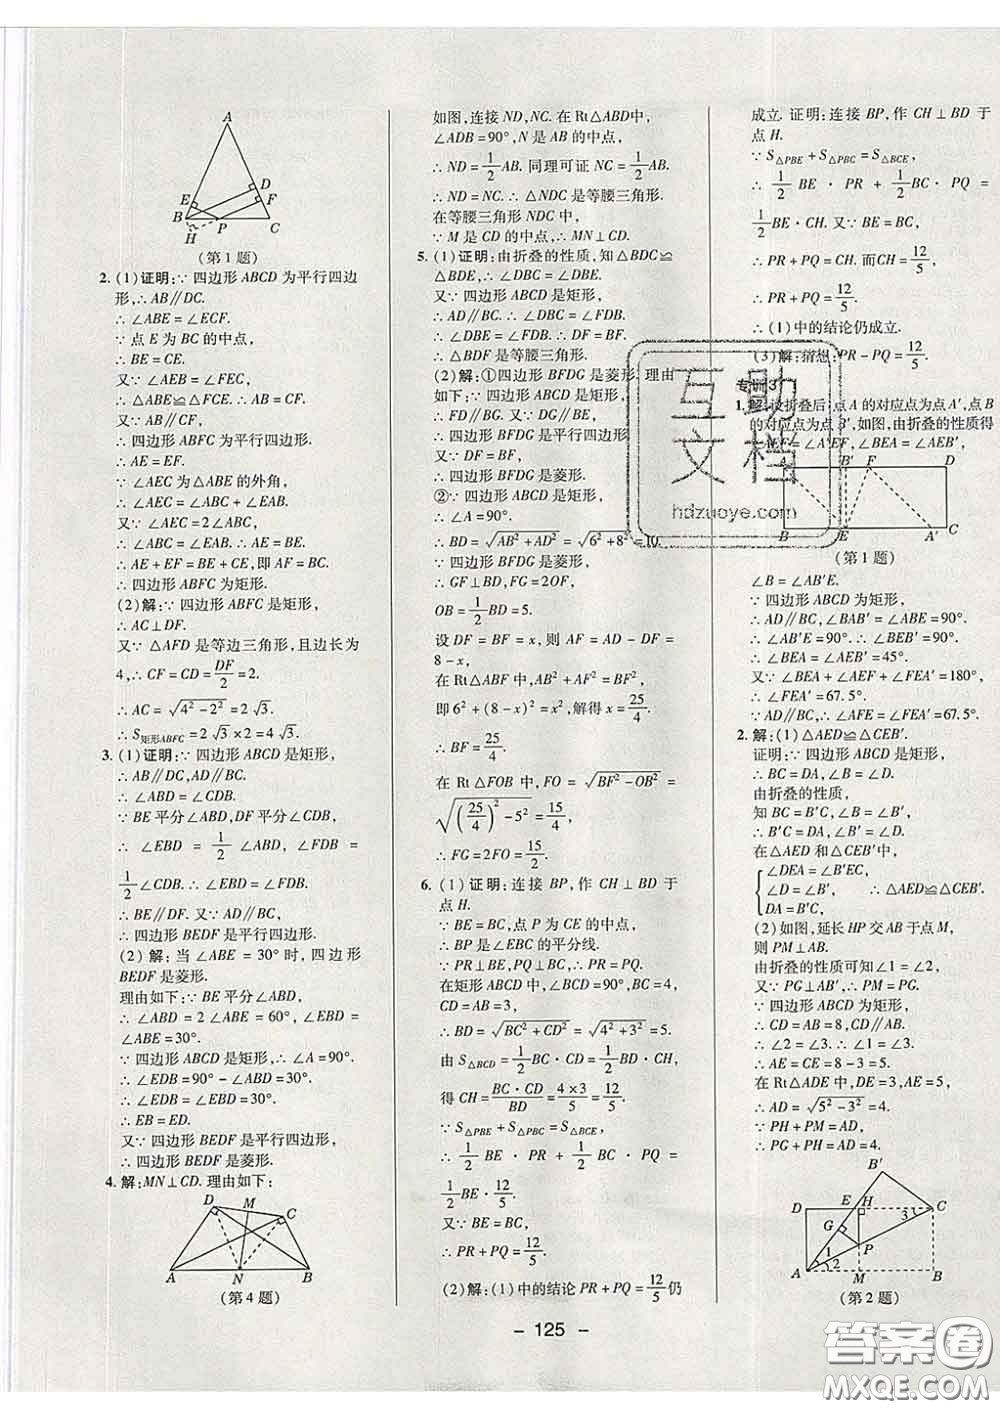 A
D
E
F
B
P
C
H
(第1题)
2. (1)证明:∵四边形ABCD为平行四边
形,∴AB∥DC.
∴∠ABE=∠ECF.
∵点E为BC的中点,
∴BE=CE.
又∵∠AEB=∠FEC,
∴△ABE≌△FCE. ∴AB=CF.
∴四边形ABFC为平行四边形.
∴AE=EF.
∵∠AEC为△ABE的外角,
∴∠AEC=∠ABC+∠EAB.
又∵∠AEC=2∠ABC,
∴∠ABC=∠EAB. ∴AE=BE.
∴AE+EF=BE+CE,即AF=BC.
∴四边形ABFC为矩形.
(2)解:∵四边形ABFC是矩形,
∴AC⊥DF.
又∵△AFD是等边三角形,且边长为
4,∴CF=CD=DF/2=2.
∴AC=√(4²-2²)=2√3.
∴S矩形ABFC=2√3×2=4√3.
3. (1)证明:∵四边形ABCD是矩形,
∴AB∥DC,AD∥BC.
∴∠ABD=∠CDB.
∵BE平分∠ABD,DF平分∠CDB,
∴∠EBD=1/2∠ABD,∠FDB=
1/2∠CDB. ∴∠EBD=∠FDB.
∴BE∥DF. 又∵AD∥BC,
∴四边形BEDF是平行四边形.
(2)解:当∠ABE=30°时,四边形
BEDF是菱形.
理由如下:∵BE平分∠ABD,
∴∠ABD=2∠ABE=60°,∠EBD=
∠ABE=30°.
∵四边形ABCD是矩形,
∴∠EDB=90°-∠ABD=30°.
∴∠EDB=∠EBD=30°.
∴EB=ED.
又∵四边形BEDF是平行四边形,
∴四边形BEDF是菱形.
4. 解:MN⊥CD. 理由如下:
D
M
C
A
N
B
(第4题)
如图,连接ND,NC. 在Rt△ABD中,
∠ADB=90°,N是AB的中点,
∴ND=1/2AB. 同理可证NC=1/2AB.
∴ND=NC. ∴△NDC是等腰三角形.
在等腰三角形NDC中,
∵M是CD的中点,∴MN⊥CD.
5. (1)证明:由折叠的性质,知△BDC≌
△BDE,∴∠DBC=∠DBE.
又∵四边形ABCD是矩形,
∴AD∥BC. ∴∠DBC=∠FDB.
∴∠DBE=∠FDB. ∴DF=BF.
∴△BDF是等腰三角形.
(2)解:①四边形BFDG是菱形. 理由
如下:∵四边形ABCD是矩形,
∴FD∥BG. 又∵DG∥BE,
∴四边形BFDG是平行四边形.
又∵DF=BF,
∴四边形BFDG是菱形.
②∵四边形ABCD是矩形,
∴∠A=90°.
∴BD=√(AB²+AD²)=√(6²+8²)=10.
∵四边形BFDG是菱形,
∴GF⊥BD,FG=2OF,
OB=1/2BD=5.
设DF=BF=x,则AF=AD-DF=
8-x,
在Rt△ABF中,AB²+AF²=BF²,
即6²+(8-x)²=x²,解得x=25/4.
∴BF=25/4.
在Rt△FOB中,FO=√(BF²-OB²)=
√((25/4)²-5²)=15/4.
∴FG=2FO=15/2.
6. (1)证明:连接BP,作CH⊥BD于
点H.
∵BE=BC,点P为CE的中点,
∴BP是∠EBC的平分线.
∵PR⊥BE,PQ⊥BC,∴PR=PQ.
在矩形ABCD中,∠BCD=90°,BC=4,
CD=AB=3,
∴BD=√(BC²+CD²)=√(4²+3²)=5.
由S△BCD=1/2BC·CD=1/2BD·CH,
得CH=BC·CD/BD=4×3/5=12/5.
∵S△PBE+S△PBC=S△BCE,
∴1/2BE·PR+1/2BC·PQ=
1/2BE·12/5.
又∵BE=BC,
∴PR+PQ=12/5.
(2)解:(1)中的结论PR+PQ=12/5仍
成立. 证明:连接BP,作CH⊥BD于
点H.
∵S△PBE+S△PBC=S△BCE,
∴1/2BE·PR+1/2BC·PQ=
1/2BE·CH. 又∵BE=BC,
∴PR+PQ=CH. 而CH=12/5,
∴PR+PQ=12/5.
∴(1)中的结论仍成立.
(3)解:猜想:PR-PQ=12/5.
专训3
1. 解:设折叠后,点A的对应点为点A′,点B
的对应点为点B′,如图,由折叠的性质得
∠AEF=∠A′EF,∠BEA=∠AEB′,
A
B′
F
D
B
E
A′
C
(第1题)
∠B=∠AB′E.
∵四边形ABCD为矩形,
∴AD∥BC,∠BAB′=∠ABE=90°.
∴∠AB′E=90°,∴∠BEB′=90°.
∴∠BEA=∠AEB′=45°.
又∵∠BEA+∠AEF+∠FEA′=180°,
∴∠FEA′=67.5°.
∵AD∥BC,∴∠AFE=∠FEA′=67.5°.
2. 解:(1)△AED≌△CEB′.
证明:∵四边形ABCD为矩形,
∴BC=DA,∠B=∠D.
由折叠的性质,
知BC=B′C,∠B=∠B′,
∴B′C=DA,∠B′=∠D.
在△AED和△CEB′中,
∠DEA=∠B′EC,
∠D=∠B′, ∴△AED≌△CEB′.
DA=B′C,
(2)如图,延长HP交AB于点M,
则PM⊥AB.
由折叠的性质可知∠1=∠2,
又∵PG⊥AB′,∴PM=PG.
∵四边形ABCD为矩形,
∴CD=AB=8,CD∥AB.
∴∠2=∠3. ∴∠1=∠3.
∴AE=CE=8-3=5.
在Rt△ADE中,DE=3,AE=5,
∴AD=√(5²-3²)=4.
∵PH+PM=AD,
∴PG+PH=AD=4.
B′
D
E
H
C
G
3
P
1
2
A
M
B
(第2题)
- 125 -
互助
文档
hdzuoye.com
答案圈
MXQE.COM